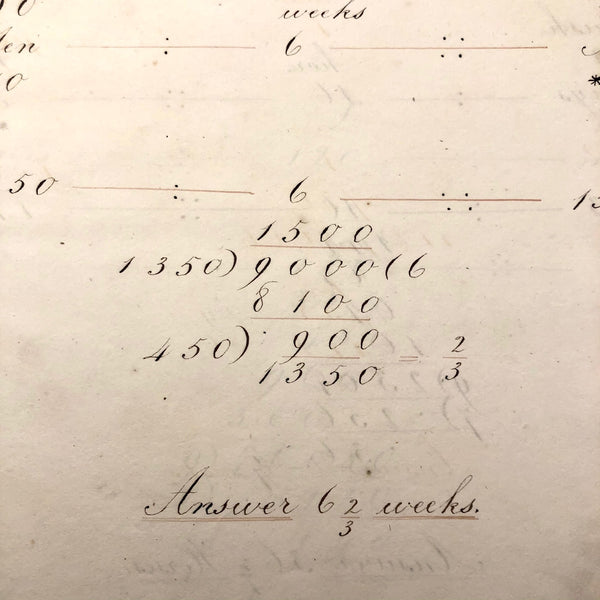 weeks
6 ::
0 *
50 : 6 :: 13
1500
1350) 9000 (6
8100
450) 900 = 2/3
1350
Answer 6 2/3 weeks.